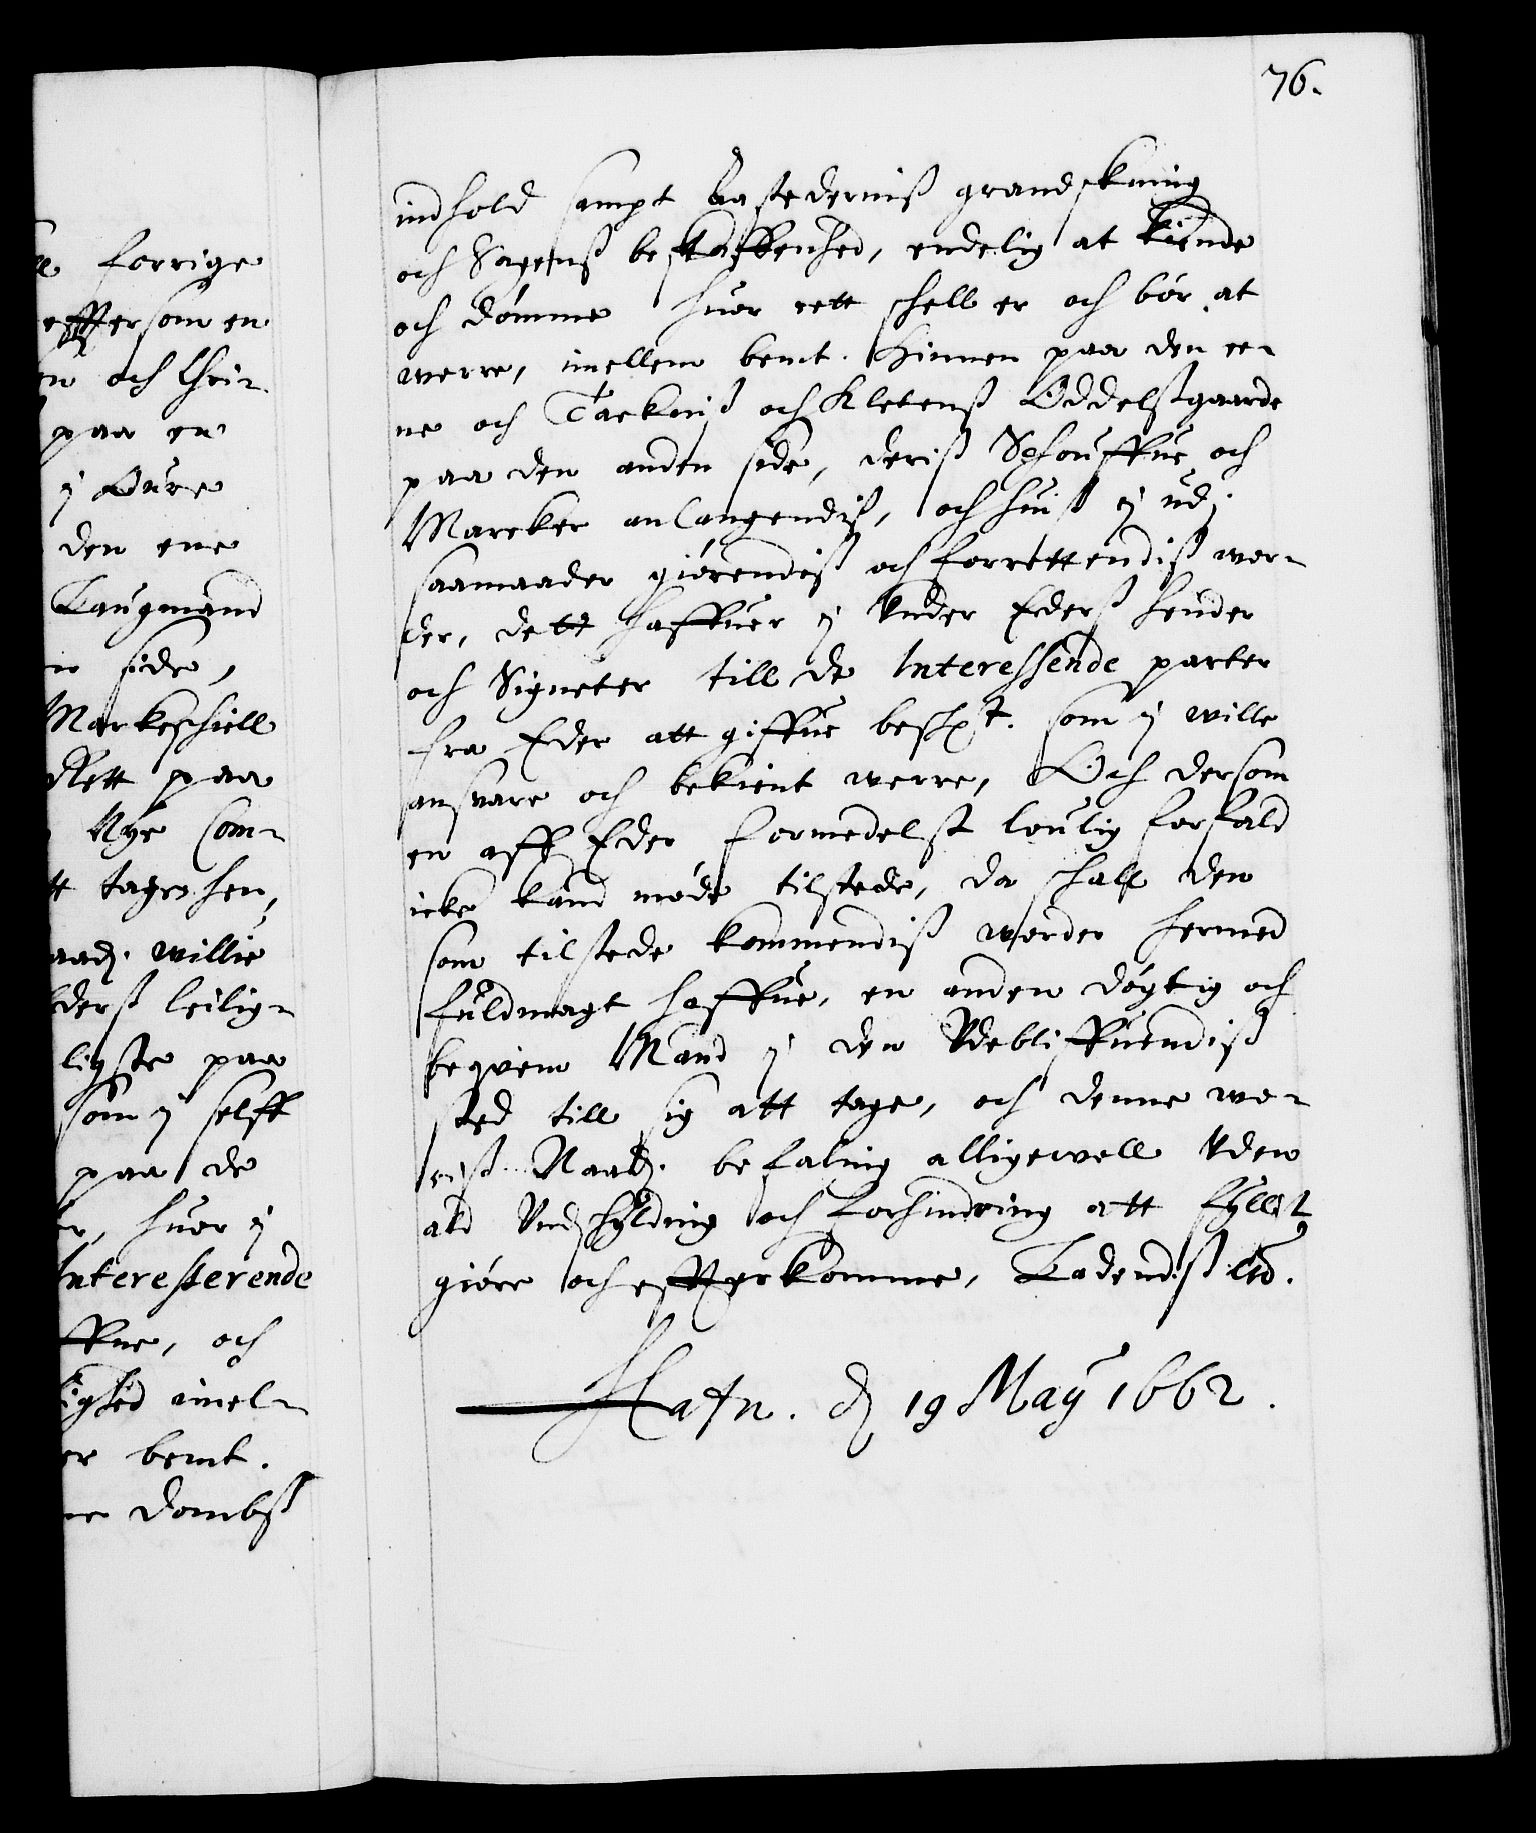 76.
indhold sampt aastederniß grandskning
och Sagenß beskaffenhed, endelig at kiende
och dómme huor rett schell er och bór at
werre, imellem bemt. Hinnen paa den ee-
ne och Taekniß och Kletenß Oddelßgaarde
paa den anden side, deriß Schouffue och
Marcker anlangendiß, och huiß j udj
saamaader giórendiß och forrettendiß wor-
der, dett haffuer j Under Ederß hender
och Signeter till de Interessende parter
fra Eder att giffue beschr. som j wille
ansvare och bekient werre, Och dersom
en aff Eder formedelst loulig forfald
icke kand móde tilstede, da schall den
som tilstede kommendiß worder hermed
fuldmagt haffue, en anden dógtig och
beqvem Mand j den Udebliffuendiß
sted till sig att tage, och denne wo-
riß Naad. befaling alligewell Uden
ald Undschylding och forhindring att fyllist
gióre och effterkomme, Ladendiß etc.
Hafn. d 19 Maÿ 1662.
forrige
effersom en
och
paa en
j Lure
den ene
Laugmand
side,
Markeschiell
Rett paa
Nye Com-
tages hen,
aad. willie
derß leilig-
ligste paa
som j selff
paa de
huor j
Interesserende
ffue, och
ighed imel-
er bemt.
ne dombß